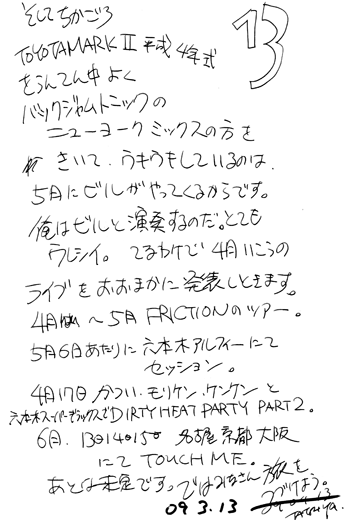 そしてちかごろ
13
TOYOTA MARK II 平成4年式
をうんてん中よく
バックジャムトニックの
ニューヨークミックスの方を
きいて、うきうきしているのは、
5月にビルがやってくるからです。
俺はビルと演奏するのだ。とても
ウレシイ。てなわけで4月いこうの
ライブをおおまかに発表しときます。
4月 〜5月 FRICTIONのツアー。
5月6日あたりに六本木アルフィーにて
セッション。
4月17日 かつい、モリケン、ケンケンと
六本木スーパーデラックスでDIRTY HEAT PARTY PART 2。
6月、13日14日15日 名古屋 京都 大阪
にて TOUCH ME。
あとは未定です。ではみなさん 旅を
つづけよう。
09 3.13
Tatsuya.